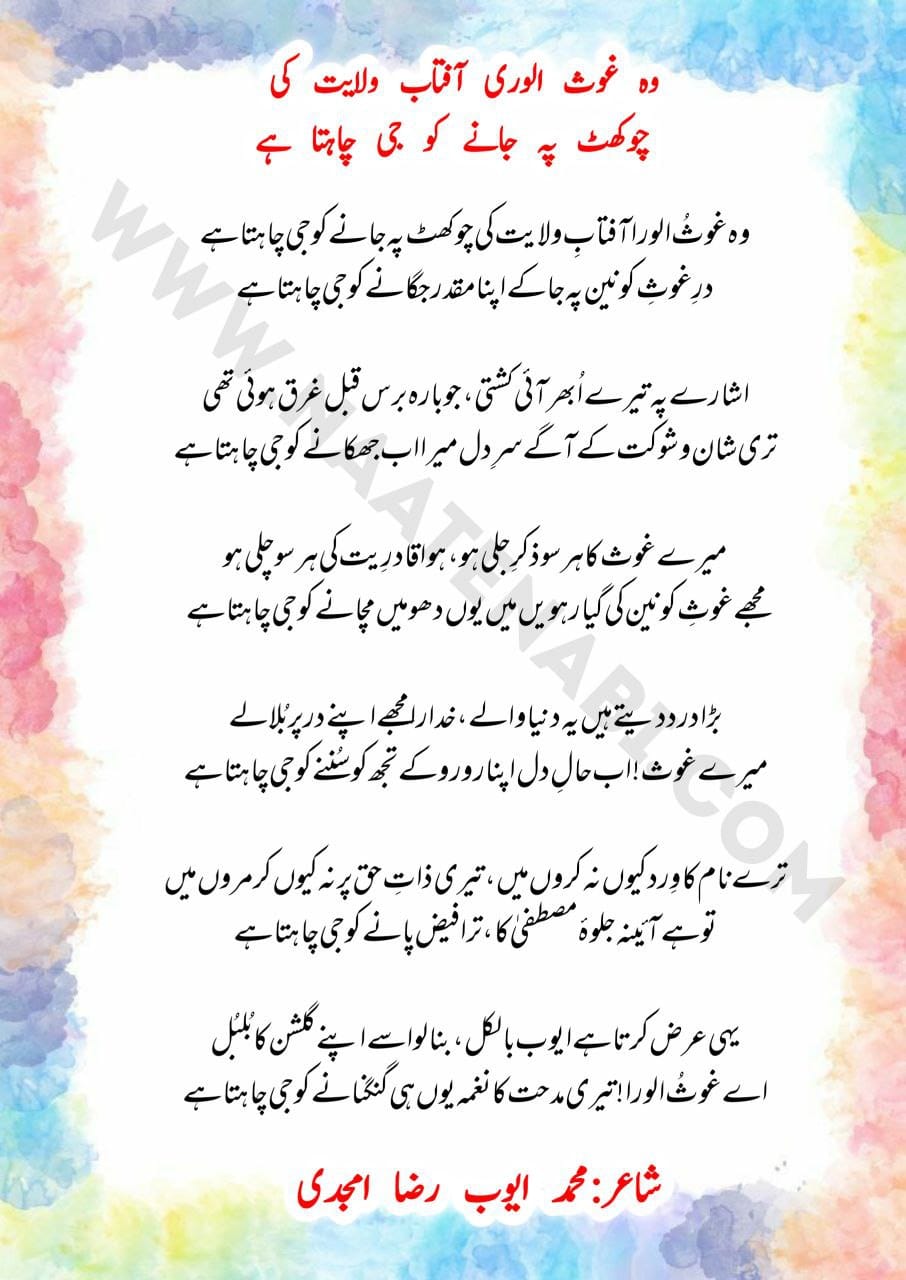 وہ غوث الوری آفتاب ولایت کی
چوکھٹ پہ جانے کو جی چاہتا ہے
وہ غوثُ الورا آفتابِ ولایت کی چوکھٹ پہ جانے کو جی چاہتا ہے
درِ غوثِ کونین پہ جا کے اپنا مقدر جگانے کو جی چاہتا ہے
اشارے پہ تیرے اُبھر آئی کشتی، جو بارہ برس قبل غرق ہوئی تھی
تری شان و شوکت کے آگے سرِ دل میرا اب جھکانے کو جی چاہتا ہے
میرے غوث کا ہر سو ذکرِ جلی ہو، ہوا قادرِیت کی ہر سو چلی ہو
مجھے غوثِ کونین کی گیارہویں میں یوں دھومیں مچانے کو جی چاہتا ہے
بڑا درد دیتے ہیں یہ دنیا والے، خدارا مجھے اپنے در پر بُلا لے
میرے غوث! اب حالِ دل اپنا رو رو کے تجھ کو سُننے کو جی چاہتا ہے
ترے نام کا وِرد کیوں نہ کروں میں، تیری ذاتِ حق پر نہ کیوں کر مروں میں
تو ہے آئینہ جلوۂ مصطفیٰ کا، ترا فیض پانے کو جی چاہتا ہے
یہی عرض کرتا ہے ایوب بالکل، بنا لو اسے اپنے گلشن کا بُلبُل
اے غوثُ الورا! تیری مدحت کا نغمہ یوں ہی گنگنانے کو جی چاہتا ہے
شاعر: محمد ایوب رضا امجدی
WWW.NAATENABI.COM